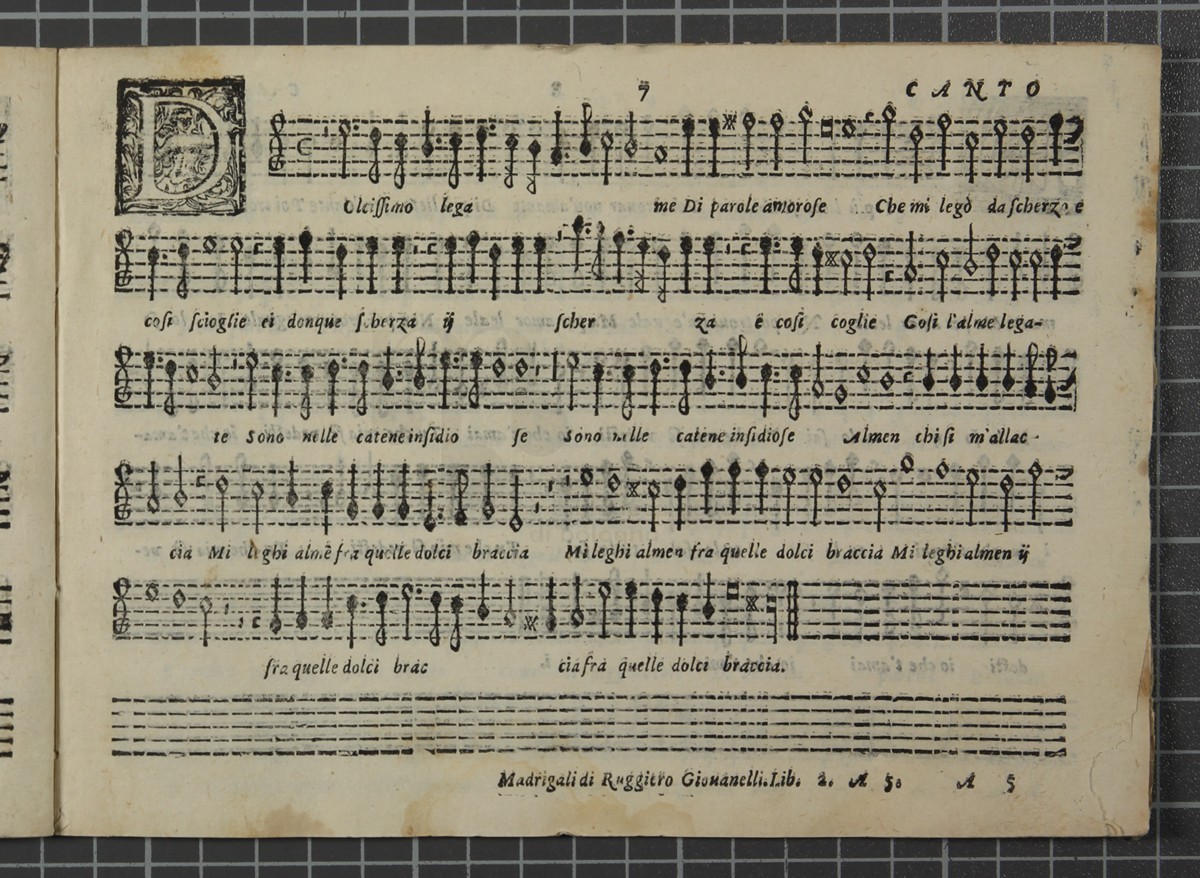 7 CANTO
D Olcissimo lega me Di parole amorose Che mi legò da scherzo e
cosi scioglie ei donque scherza ij scher za e cosi coglie Cosi l'alme lega-
te Sono nelle catene insidio se Sono nelle catene insidiose Almen chi si m'allac-
cia Mi leghi almẽ fra quelle dolci braccia Mi leghi almen fra quelle dolci braccia Mi leghi almen ij
fra quelle dolci brac cia fra quelle dolci braccia.
Madrigali di Ruggiero Giouanelli. Lib. 2. A 5. A 5